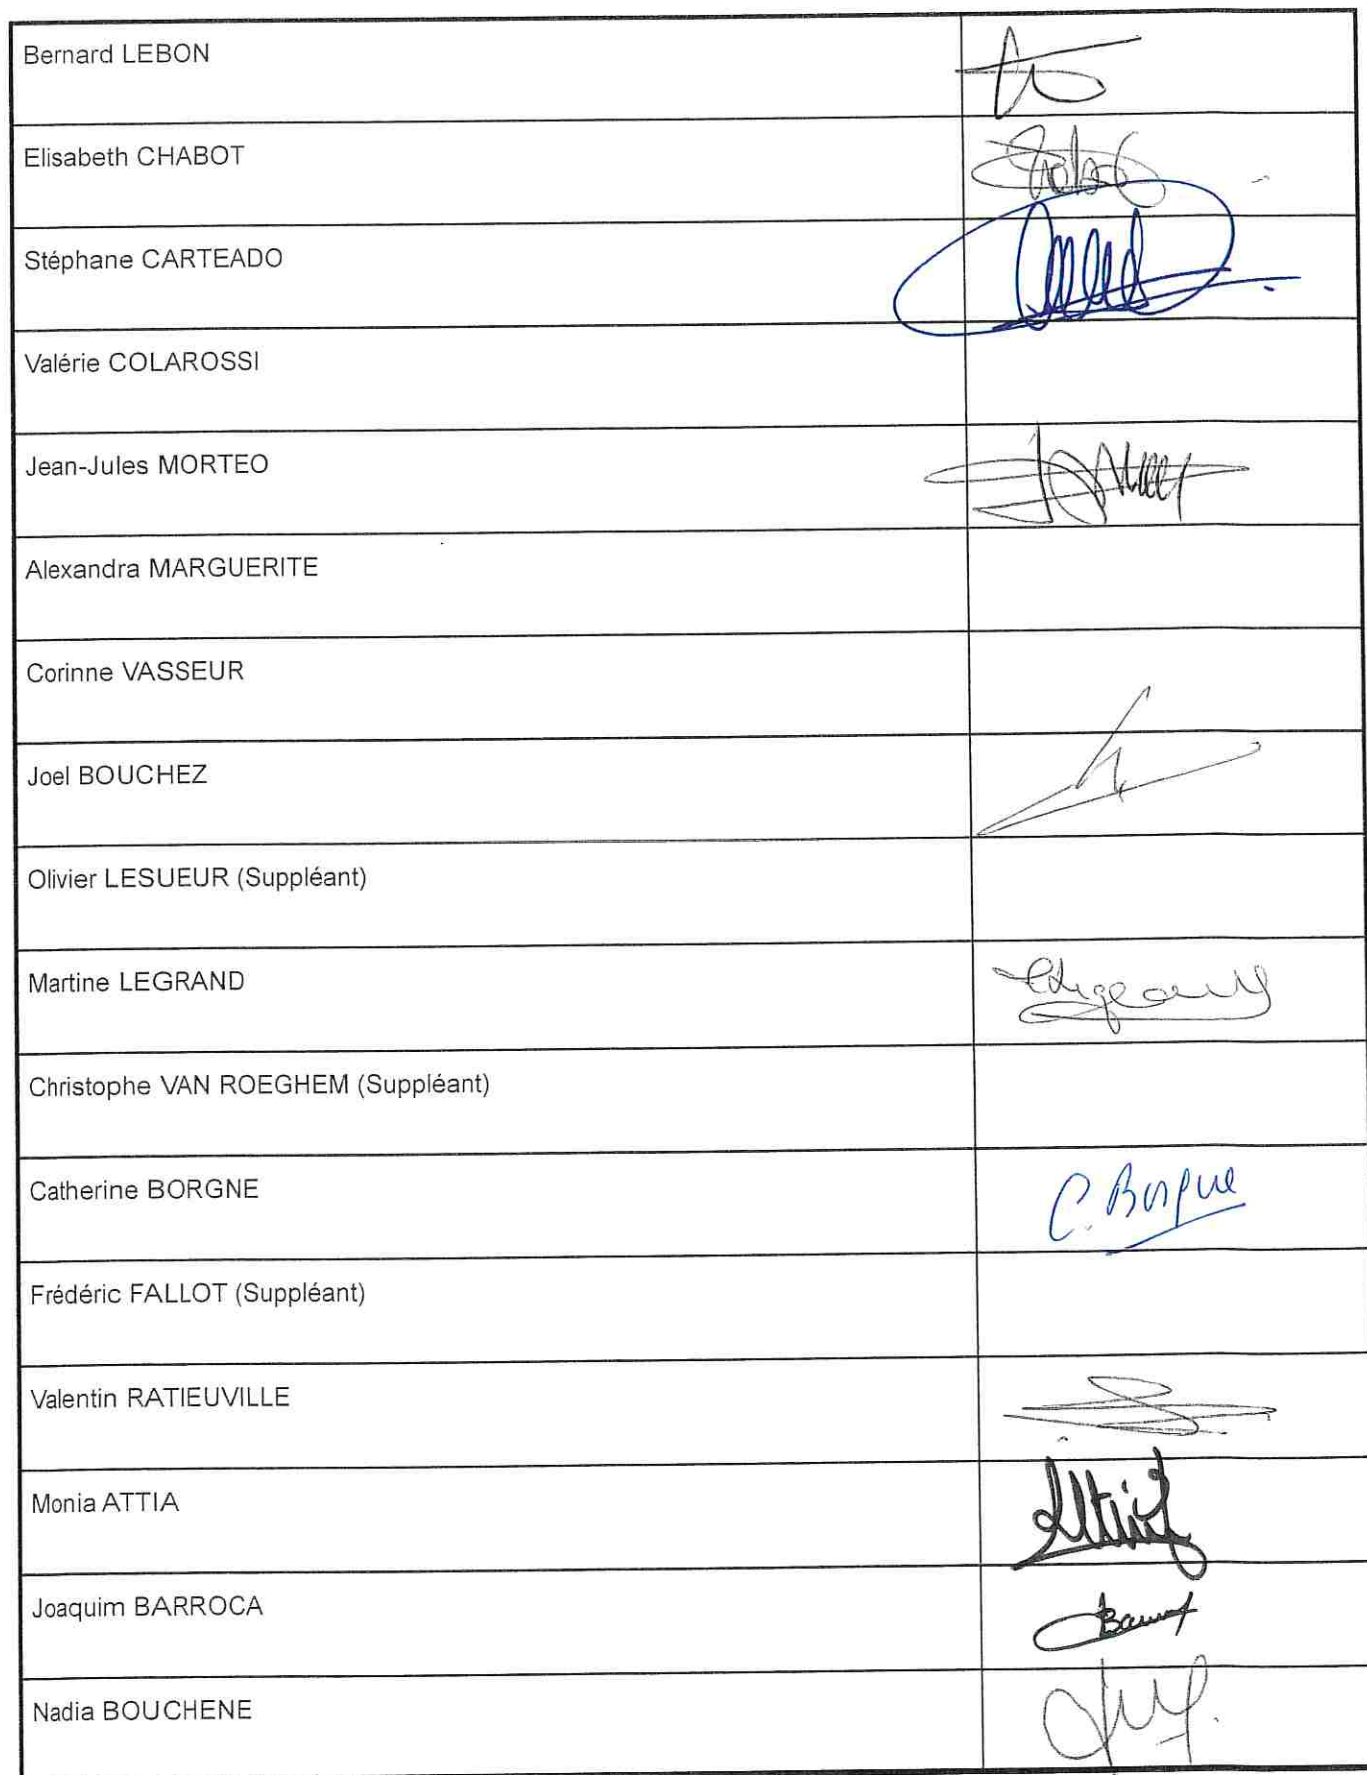 Bernard LEBON
Elisabeth CHABOT
Stéphane CARTEADO
Valérie COLAROSSI
Jean-Jules MORTEO
Alexandra MARGUERITE
Corinne VASSEUR
Joel BOUCHEZ
Olivier LESUEUR (Suppléant)
Martine LEGRAND
Christophe VAN ROEGHEM (Suppléant)
Catherine BORGNE
C. Borgne
Frédéric FALLOT (Suppléant)
Valentin RATIEUVILLE
Monia ATTIA
Joaquim BARROCA
Nadia BOUCHENE